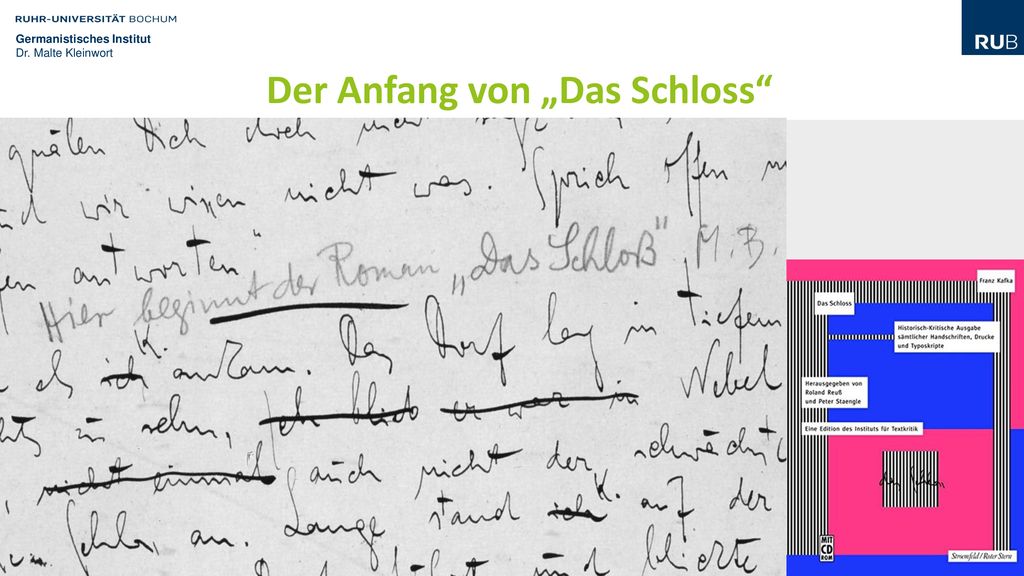 RUHR-UNIVERSITÄT BOCHUM
Germanistisches Institut
Dr. Malte Kleinwort
RUB
Der Anfang von „Das Schloss“
quälen Dich doch nicht
wir wissen nicht was. Sprich offen
antworten“
Hier beginnt der Roman „Das Schloß“. M. B.
K.
als ich ankam. Das Dorf lag in tiefem
zu sehn, ich blieb er war in Nebel
nicht einmal auch nicht der schwächste
K.
an. Lange stand ich auf der
und blickte
Franz Kafka
Das Schloss
Historisch-Kritische Ausgabe
sämtlicher Handschriften, Drucke
und Typoskripte
Herausgegeben von
Roland Reuß
und Peter Staengle
Eine Edition des Instituts für Textkritik
MIT
CD
ROM
Stroemfeld / Roter Stern